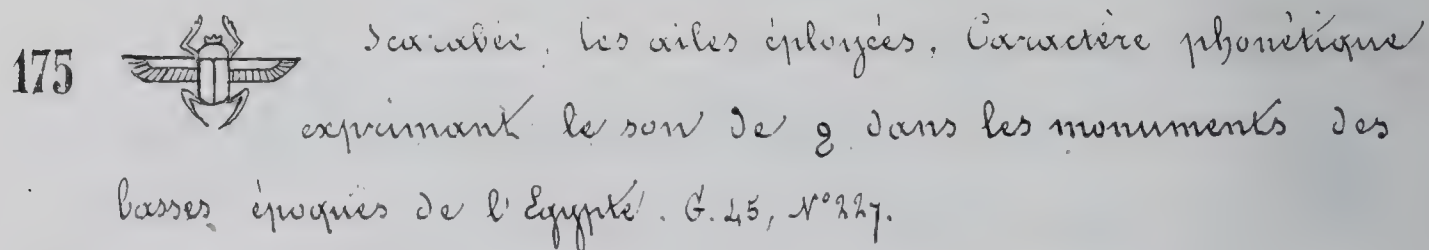 175 Scarabée, les ailes éployées. Caractère phonétique
exprimant le son de ϩ dans les monuments des
basses époques de l'Egypte. G. 45, N° 227.